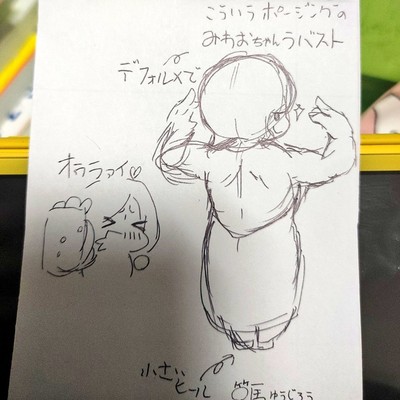 こういうポージングの
みわおちゃんラバスト
デフォルメで
小さい
ヒール
ゆうじろう